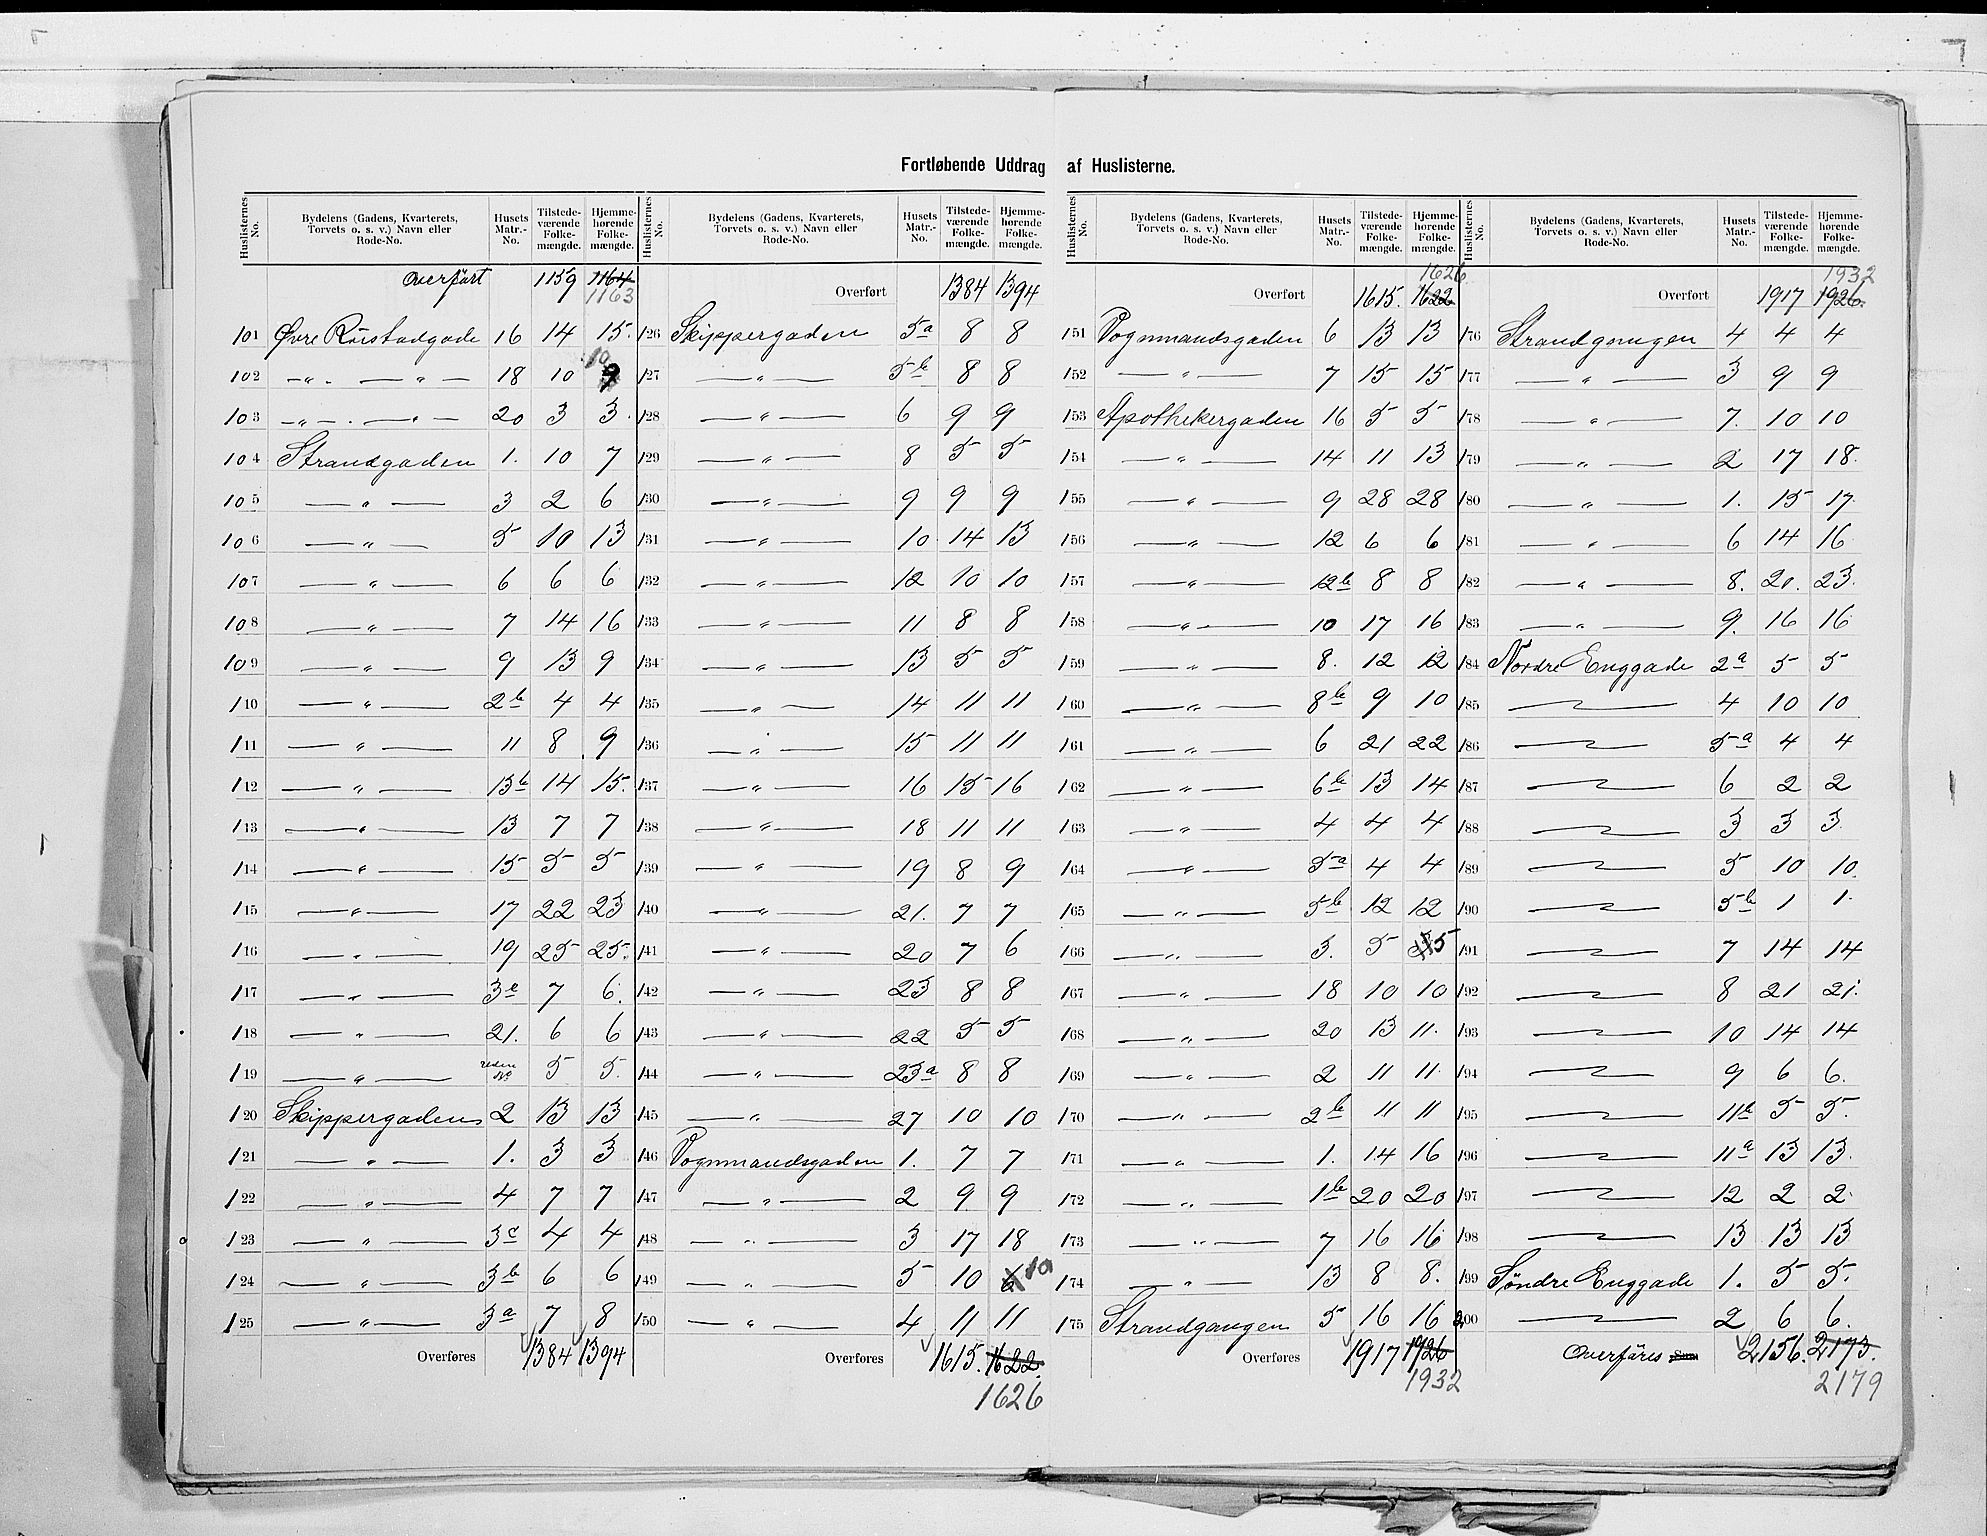 Fortløbende Uddrag af Huslisterne.
Huslisternes No. Bydelens (Gadens, Kvarterets, Torvets o. s. v.) Navn eller Rode-No. Husets Matr.-No. Tilstedeværende Folkemængde. Hjemmehørende Folkemængde.
Overført 1159 1164 1163
101 Øvre Rüistadgade 16 14 15.
102 —„— — „ — 18 10 9 10
103 —„— — „ — 20 3 3.
104 Strandgaden 1. 10 7
105 — „ — 3 2 6
106 — „ — 5 10 13
107 — „ — 6 6 6
108 — „ — 7 14 16
109 — „ — 9 13 9
110 — „ — 2b 4 4
111 — „ — 11 8 9
112 — „ — 13b 14 15.
113 — „ — 13 7 7
114 — „ — 15 5 5
115 — „ — 17 22 23
116 — „ — 19 25 25.
117 — „ — 3e 7 6.
118 — „ — 21. 6 6
119 — „ — uden No 5 5.
120 Skippergaden 2 13 13
121 — „ — 1. 3 3
122 — „ — 4 7 7
123 — „ — 3c 4 4
124 — „ — 3b 6 6
125 — „ — 3a 7 8
Overføres 1384 1394
Huslisternes No. Bydelens (Gadens, Kvarterets, Torvets o. s. v.) Navn eller Rode-No. Husets Matr.-No. Tilstedeværende Folkemængde. Hjemmehørende Folkemængde.
Overført 1384 1394
126 Skippergaden 5a 8 8
127 — „ — 5b 8 8
128 — „ — 6 9 9
129 — „ — 8 5 5
130 — „ — 9 9 9
131 — „ — 10 14 13
132 — „ — 12 10 10
133 — „ — 11 8 8
134 — „ — 13 5 5
135 — „ — 14 11 11
136 — „ — 15 11 11
137 — „ — 16 15 16
138 — „ — 18 11 11
139 — „ — 19 8 9
140 — „ — 21. 7 7
141 — „ — 20 7 6
142 — „ — 23 8 8
143 — „ — 22 5 5
144 — „ — 23a 8 8
145 — „ — 27 10 10
146 Vognmandsgaden 1. 7 7
147 — „ — 2 9 9
148 — „ — 3 17 18
149 — „ — 5 10 10
150 — „ — 4 11 11
Overføres 1615. 1622. 1626
Huslisternes No. Bydelens (Gadens, Kvarterets, Torvets o. s. v.) Navn eller Rode-No. Husets Matr.-No. Tilstedeværende Folkemængde. Hjemmehørende Folkemængde.
1626
Overført 1615. 1622
151 Vognmandsgaden 6 13 13
152 — „ — 7 15 15
153 Apothekergaden 16 5 5
154 — „ — 14 11 13
155 — „ — 9 28 28
156 — „ — 12 6 6
157 — „ — 12b 8 8
158 — „ — 10 17 16
159 — „ — 8. 12 12
160 — „ — 8b 9 10
161 — „ — 6 21 22
162 — „ — 6b 13 14
163 — „ — 4 4 4
164 — „ — 5a 4 4
165 — „ — 5b 12 12
166 — „ — 3. 5 5
167 — „ — 18 10 10
168 — „ — 20 13 11.
169 — „ — 2 11 11.
170 — „ — 2b 11 11
171 — „ — 1. 14 16
172 — „ — 1b 20 20
173 — „ — 7 16 16
174 — „ — 13 8 8.
175 Strandgangen 5 16 16
Overføres 1917 1926 1932
Huslisternes No. Bydelens (Gadens, Kvarterets, Torvets o. s. v.) Navn eller Rode-No. Husets Matr.-No. Tilstedeværende Folkemængde. Hjemmehørende Folkemængde.
1932
Overført 1917 1926.
176 Strandgangen 4 4 4
177 — „ — 3 9 9
178 — „ — 7. 10 10
179 — „ — 2 17 18.
180 — „ — 1. 15 17.
181 — „ — 6 14 16
182 — „ — 8. 20. 23.
183 — „ — 9. 16 16
184 Nordre Enggade 2a 5 5
185 — 4 10 10
186 — 5a 4 4
187 — 6 2 2
188 — 3 3 3
189 — 5 10 10.
190 — 5b 1 1.
191 — 7 14 14
192 — 8 21 21.
193 — 10 14 14
194 — 9 6 6.
195 — 11b 5 5.
196 — 11a 13 13.
197 — 12 2 2.
198 — 13 13 13
199 Søndre Enggade 1. 5 5.
200 — 2 6 6.
Overføres 2156. 2173. 2179